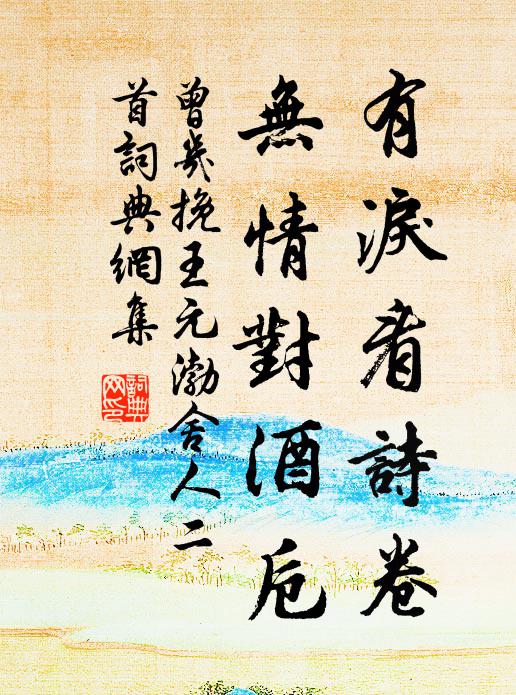 有淚看詩卷
無情對酒卮
曾幾挽王元渤舍人二
首詞典網集
詞典
网印